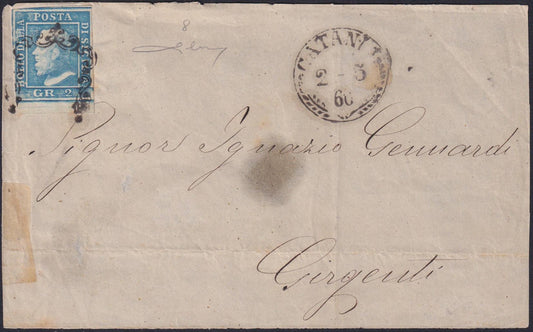 8
BOLLO DELLA
POSTA
DI SICILIA
GR. 2
CATANIA
2 - 5
60
Signor Ignazio Gennardi
Girgenti